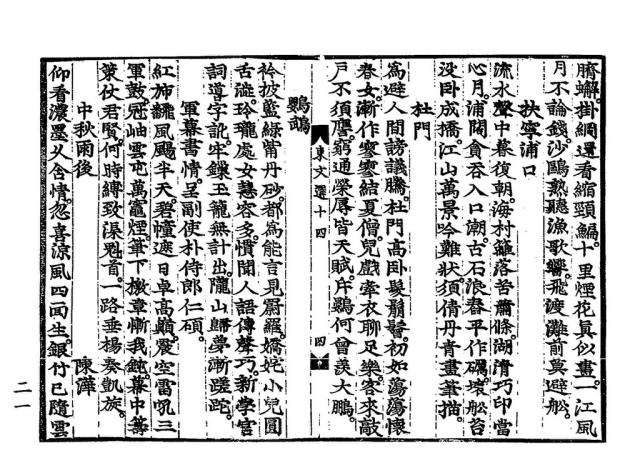 臍蟹掛網還看縮頸鯿十里煙花真似畫一江風
月不論錢沙鷗熟聽漁歌響飛渡灘前莫避舡
扶寧浦口
流水聲中暮復朝海村籬落苦蕭條湖清巧印當
心月浦闊貪吞入口潮古石浪舂平作礪壞舡苔
没臥成橋江山萬景吟難狀須倩丹青畫筆描
杜門
爲避人間謗議騰杜門高臥髮鬅鬙初如蕩蕩懷
春女漸作寥寥結夏僧兒戱牽衣聊足樂客來敲
戶不須譍窮通榮辱皆天賦斥鷃何曾羨大鵬
鸚鵡
東文選十四 四
衿披藍綠觜丹砂都爲能言見罻羅嬌姹小兒圓
舌澁玲瓏處女慧容多慣聞人語傳聲巧新學宮
詞導字訛牢鏁玉籠無計出隴山歸夢漸蹉跎
軍幕書情呈副使朴侍郎仁碩
紅旆飜風颺半天碧幢遮日卓高巓震空雷吼三
軍鼓冠岫雲屯萬竈煙筆下檄章慚我鈍幕中籌
策仗君賢何時縛致渠魁首一路垂楊奏凱旋
中秋雨後 陳澕
仰看濃墨久含情忽喜凉風四面生銀竹已隨雲
二一